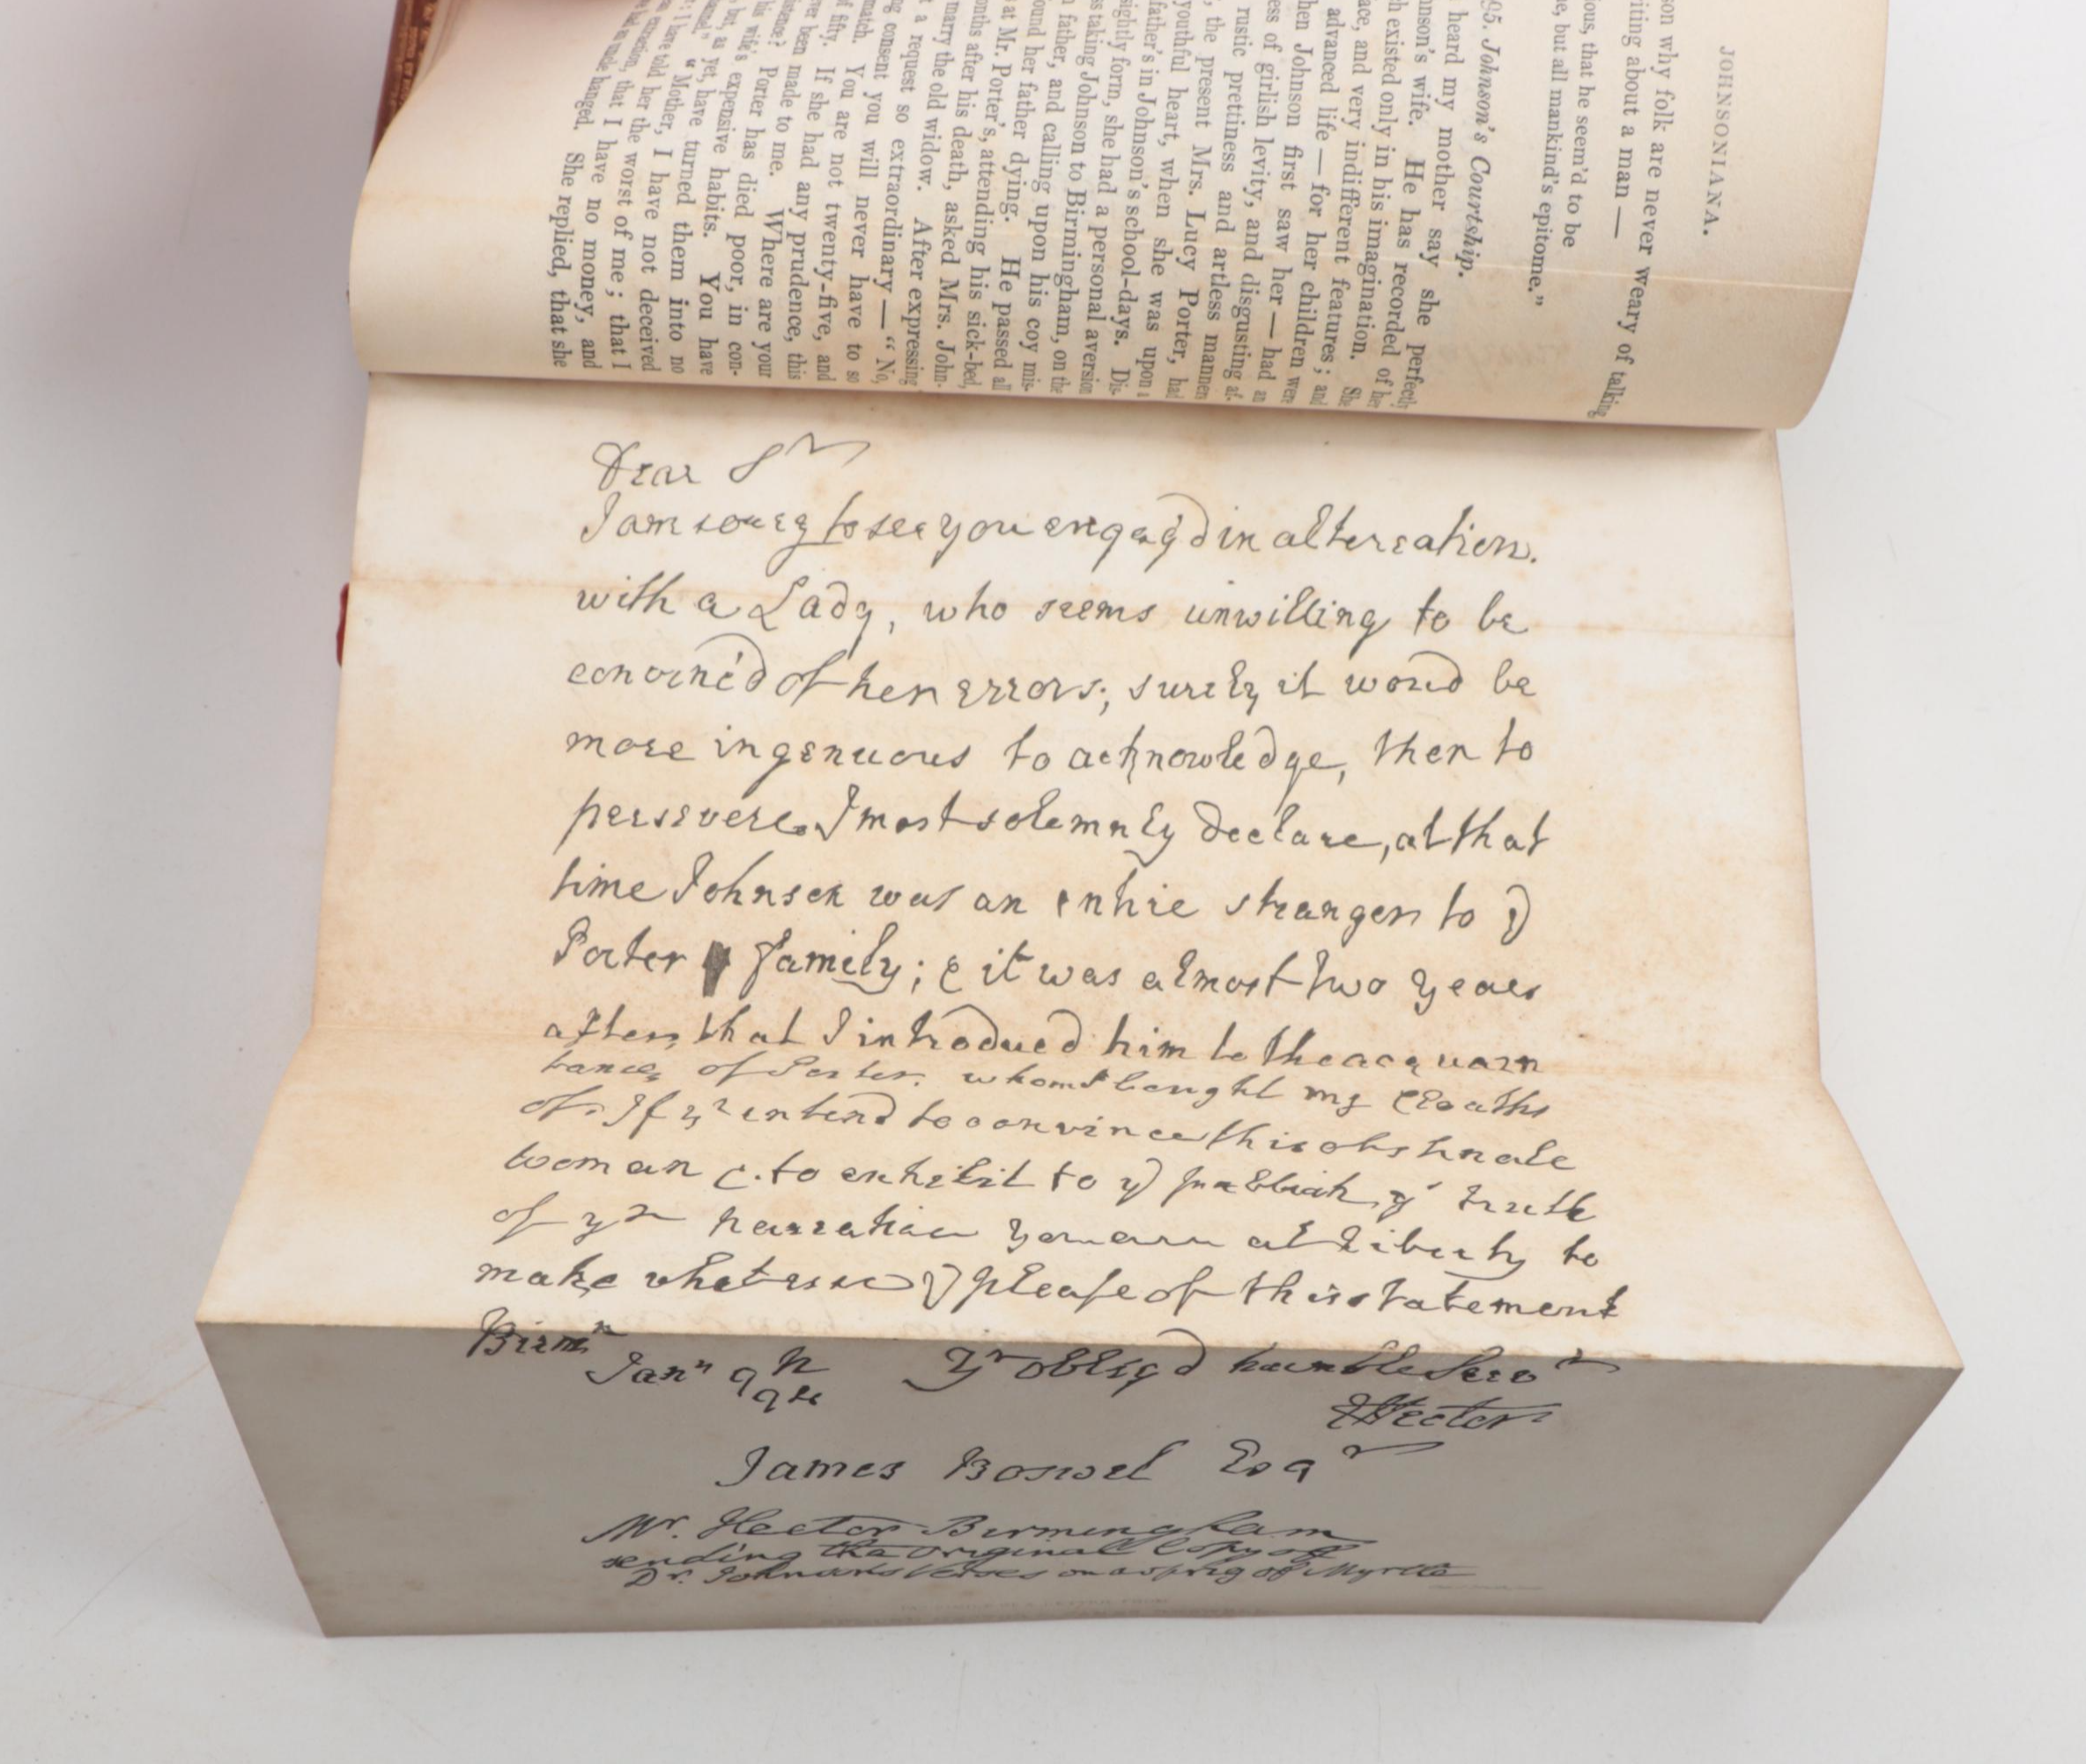 JOHNSONIANA.
son why folk are never weary of talking
iting about a man —
ious, that he seem'd to be
e, but all mankind's epitome."
95. Johnson's Courtship.
heard my mother say she perfectly
nson's wife. He has recorded of her
h existed only in his imagination. She
ace, and very indifferent features; and
advanced life — for her children were
hen Johnson first saw her — had an
ess of girlish levity, and disgusting af-
rustic prettiness and artless manners
, the present Mrs. Lucy Porter, had
youthful heart, when she was upon a
father's in Johnson's school-days. Dis-
sightly form, she had a personal aversion
s taking Johnson to Birmingham, on the
father, and calling upon his coy mis-
ound her father dying. He passed all
at Mr. Porter's, attending his sick-bed,
onths after his death, asked Mrs. John-
marry the old widow. After expressing
t a request so extraordinary — "No,
ng consent you will never have to so
match. You are not twenty-five, and
f fifty. If she had any prudence, this
ver been made to me. Where are your
istence? Porter has died poor, in con-
his wife's expensive habits. You have
but, as yet, have turned them into no
"Mother, I have not deceived
: I have told her the worst of me; that I
extraction, that I have no money, and
hanged. She replied, that she
Dear Sr
I am sorry to see you engag'd in altercation.
with a Lady, who seems unwilling to be
convinc'd of her errors; surely it would be
more ingenuous to acknowledge, then to
persevere. I most solemnly declare, at that
time Johnson was an entire stranger to ye
Porter family; & it was almost two years
after, that I introduced him to the acquain
tance of Porter. whom I bought my cloaths
of. If yr intend to convince this obstinate
woman & to exhibit to ye publick ye truth
of yr narration you are at liberty to
make whatever use please of this statement
Birmm
Jany 9th Yr oblig'd humble Servt
94
EHector
James Boswel Esqr
Mr. Hector Birmingham
sending the original Copy of
Dr. Johnson's Verses on a sprig of Myrtle